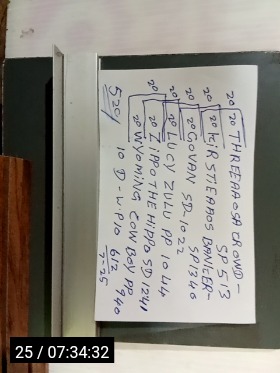 20 THREEAAOSA CROWD-
SP 513
20 KiRSTEAAOS BANKER-
SP1340
20 GOVAN SD-1022
20 LUCY ZULU PP 1044
20 ZIPPO THE HIPPO SD 1241
20 WYOMING COWBOY PP
940
10 D-W.P10 612
7-25
520/
20
20
20
20
20
25 / 07:34:32